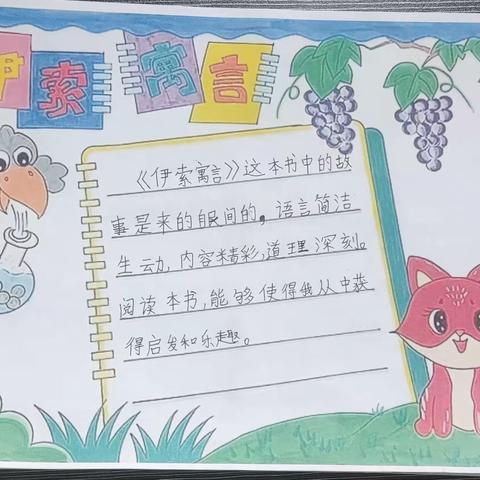 伊索寓言
《伊索寓言》这本书中的故
事是来的自民间的。语言简洁
生动,内容精彩,道理深刻。
阅读本书,能够使得我从中获
得启发和乐趣。